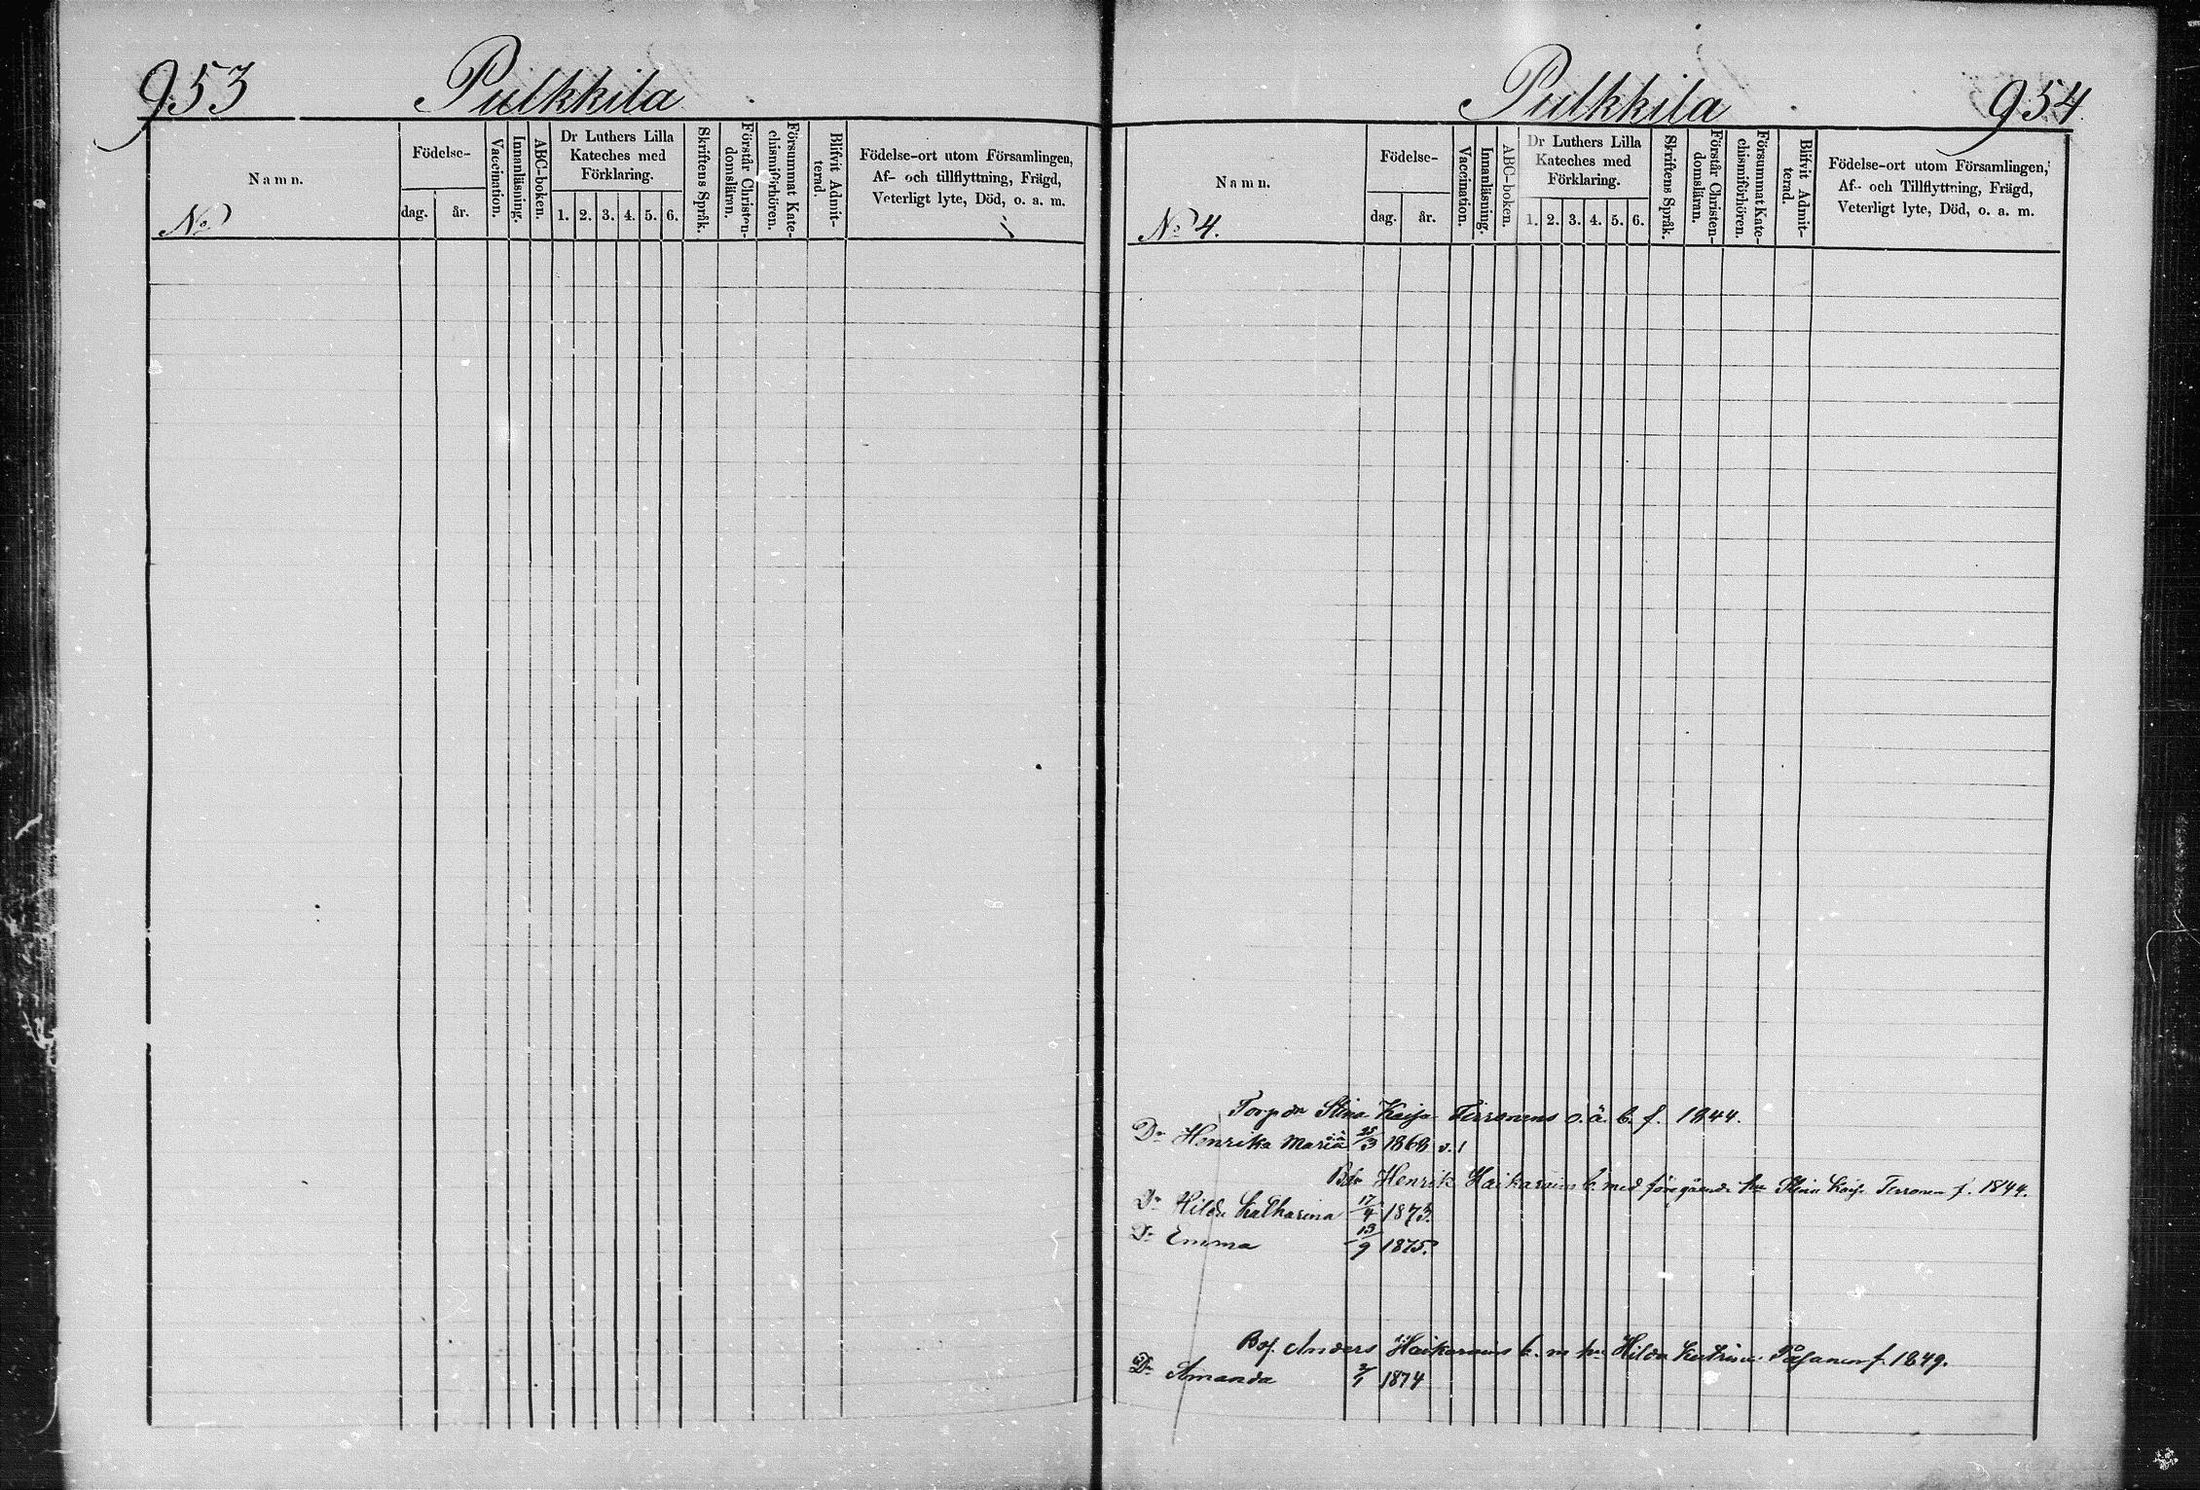 953 Pulkkila
Namn.
No
Födelse-
dag. år.
Vaccination.
Innanläsning.
ABC-boken.
Dr Luthers Lilla
Kateches med
Förklaring.
1. 2. 3. 4. 5. 6.
Skriftens Språk.
Förstår Christen-
domsläran.
Försummat Kate-
chismiförhören.
Blifvit Admit-
terad.
Födelse-ort utom Församlingen,
Af- och tillflyttning, Frägd,
Veterligt lyte, Död, o. a. m.
Pulkkila 954.
Namn.
No 4.
Födelse-
dag. år.
Vaccination.
Innanläsning.
ABC-boken.
Dr Luthers Lilla
Kateches med
Förklaring.
1. 2. 3. 4. 5. 6.
Skriftens Språk.
Förstår Christen-
domsläran.
Försummat Kate-
chismiförhören.
Blifvit Admit-
terad.
Födelse-ort utom Församlingen,
Af- och Tillflyttning, Frägd,
Veterligt lyte, Död, o. a. m.
Stina Kaisa Tirronens o. ä. b. f. 1844.
Dr Henrika Maria 25/3 1868 v.
Henrik Haikarains b. med föregående hu Stina Kaisa Terronen f. 1844.
Dr Hilda Katharina 17/4 1873.
Dr Emma 13/9 1875.
Anders Haikarains b. m hu Hilda f. 1849.
Dr Amanda 2/1 1874